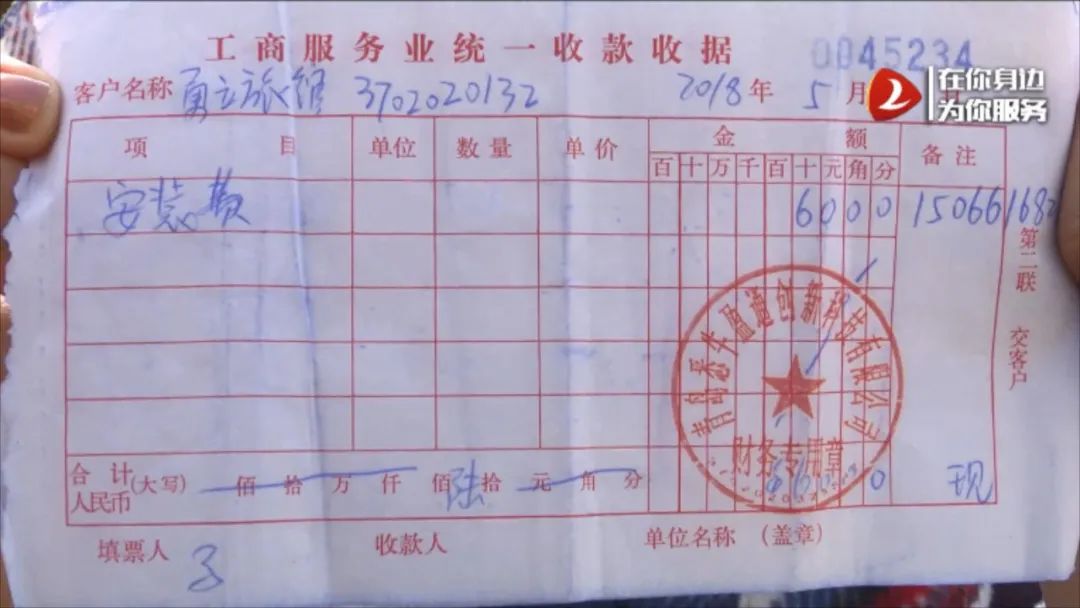 工商服务业统一收款收据
0045234
在你身边
为你服务
客户名称 3702020132 2018年 5月
项目 单位 数量 单价 金额 备注
百十万千百十元角分
安装费 6000 15066168
第二联 交客户
财务专用章
合计 人民币 (大写) 佰拾万仟佰陆拾元角分 现
填票人 收款人 单位名称 (盖章)